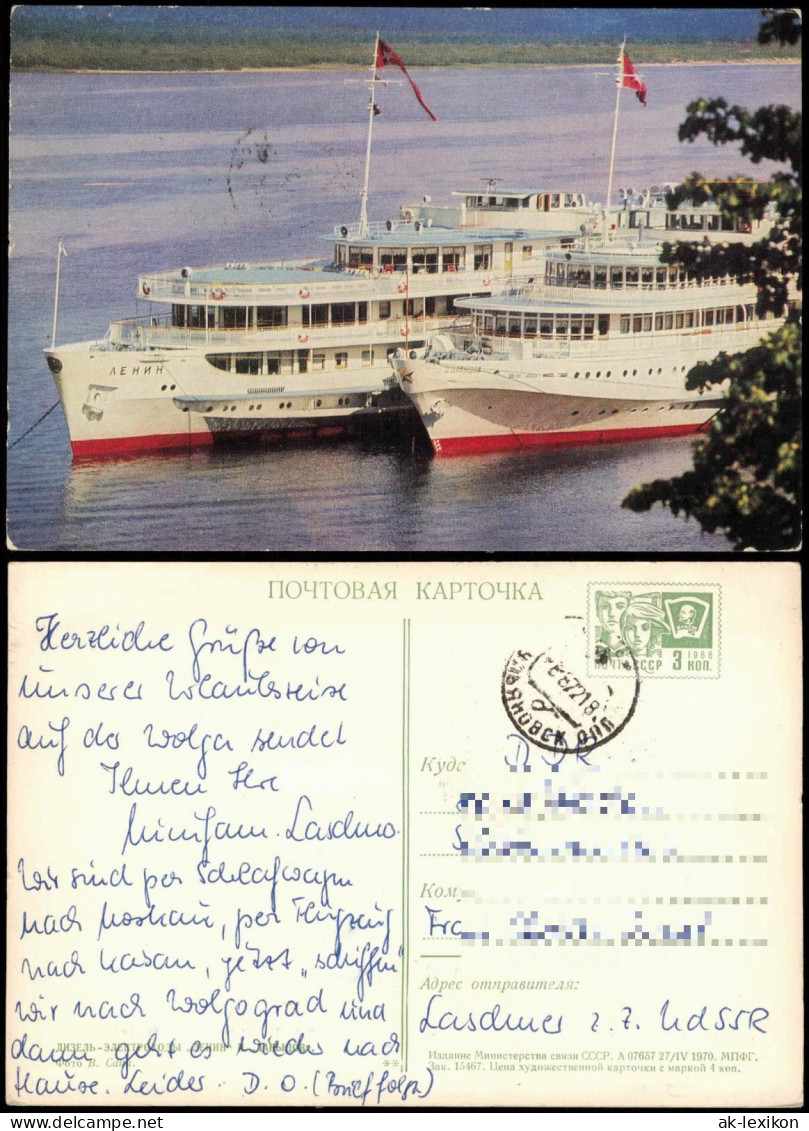 ЛЕНИН
ПОЧТОВАЯ КАРТОЧКА
1966
ПОЧТА СССР 3 КОП.
УЛЬЯНОВСК
Herzliche Grüße von
unserer Urlaubsreise
auf der Wolga sendet
Ihnen Ihre
Laschme.
Wir sind per Schlafwagen
nach Moskau, per Flugzeug
nach Kasan, jetzt „schiffen"
wir nach Wolgograd und
dann geht es wieder nach
Hause. Leider. D. O. (Brief folgt)
Куда DDR
Кому
Frau
Адрес отправителя:
Laschmer z. Z. UdSSR
ДИЗЕЛЬ-ЭЛЕКТРОХОДЫ „ЛЕНИН" И
Фото В.
**
Издание Министерства связи СССР. А 07657 27/IV 1970. МПФГ.
Зак. 15467. Цена художественной карточки с маркой 4 коп.
ak-lexikon